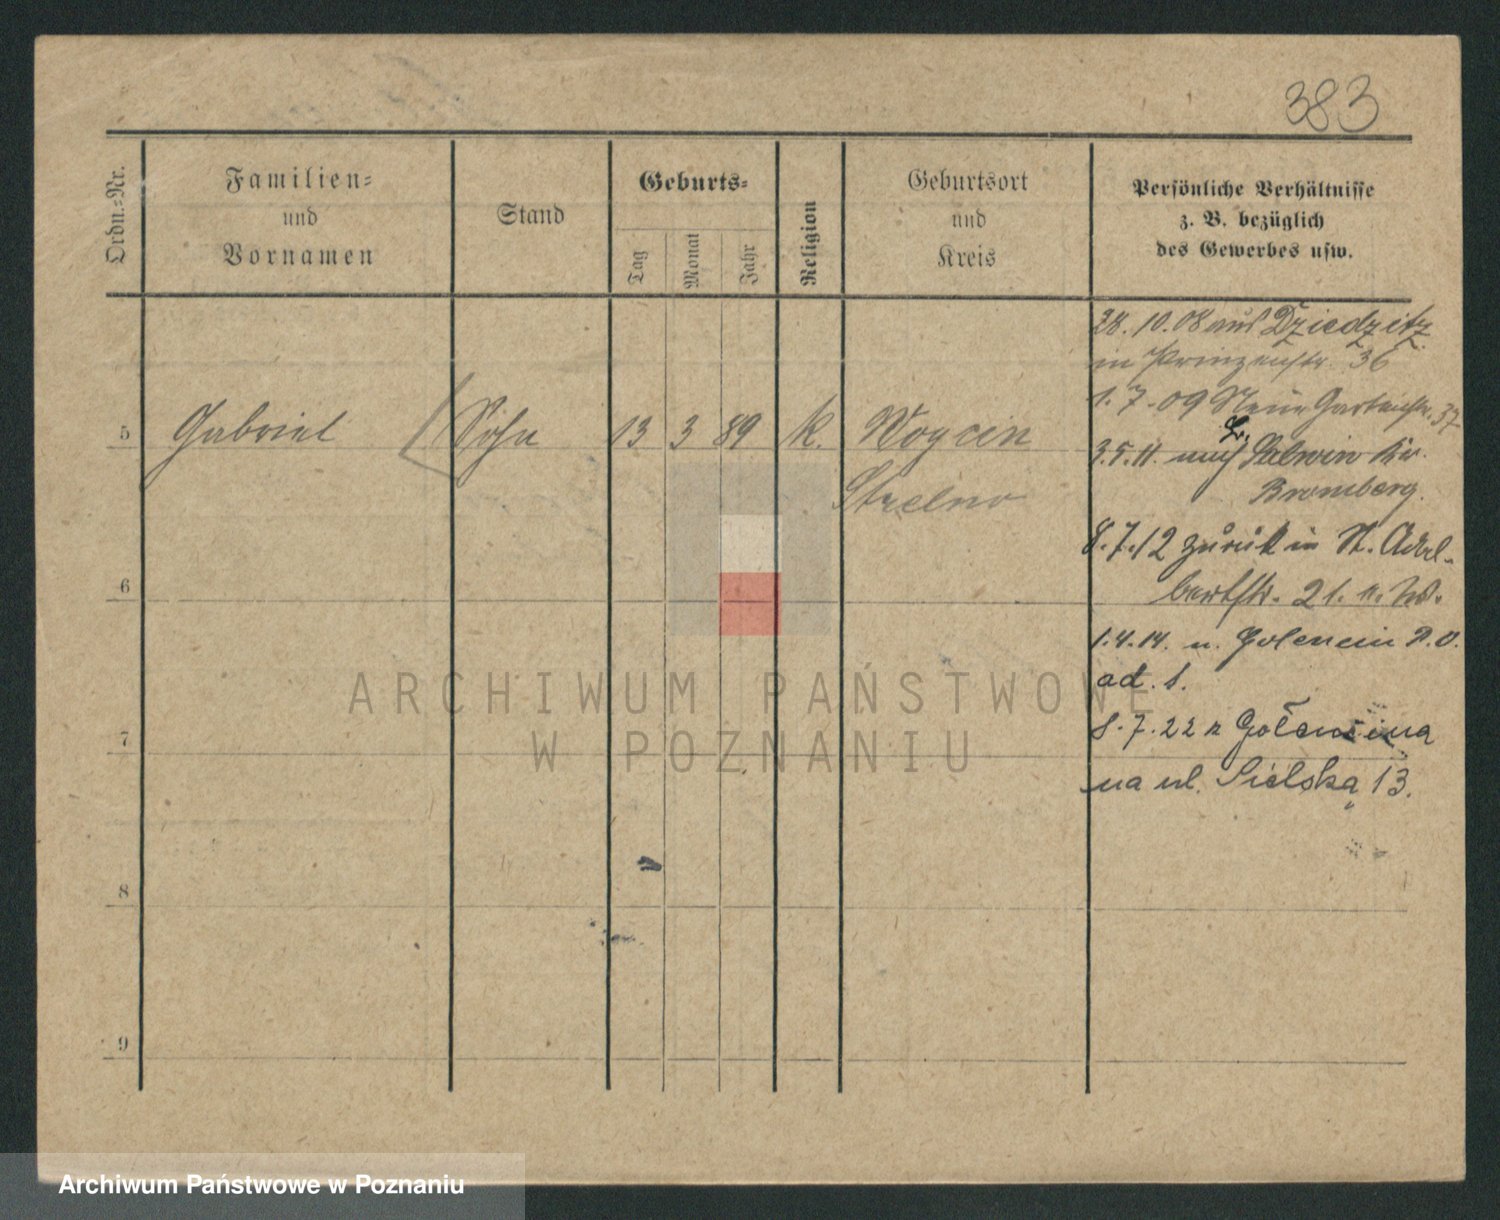 383
Ordn.-Nr.
Familien-
und
Vornamen
Stand
Geburts-
Tag
Monat
Jahr
Religion
Geburtsort
und
Kreis
Persönliche Verhältnisse
z. B. bezüglich
des Gewerbes usw.
28. 10. 08 aus Dziedzitz
in Prinzenstr. 36
1. 7. 09 Neue Gartenstr. 37
5 Gabriel Sohn 13 3 89 k. Woycin
Strelno
3. 5. 11. nach Kr.
Bromberg.
8. 7. 12 zurück in St. Adal-
bertstr. 21. n. W.
6
1. 4. 14. n. Golencin P. O.
ad. 1.
7
8. 7. 22 z Golencina
na ul. Sielska 13.
8
9
ARCHIWUM PAŃSTWOWE
W POZNANIU
Archiwum Państwowe w Poznaniu